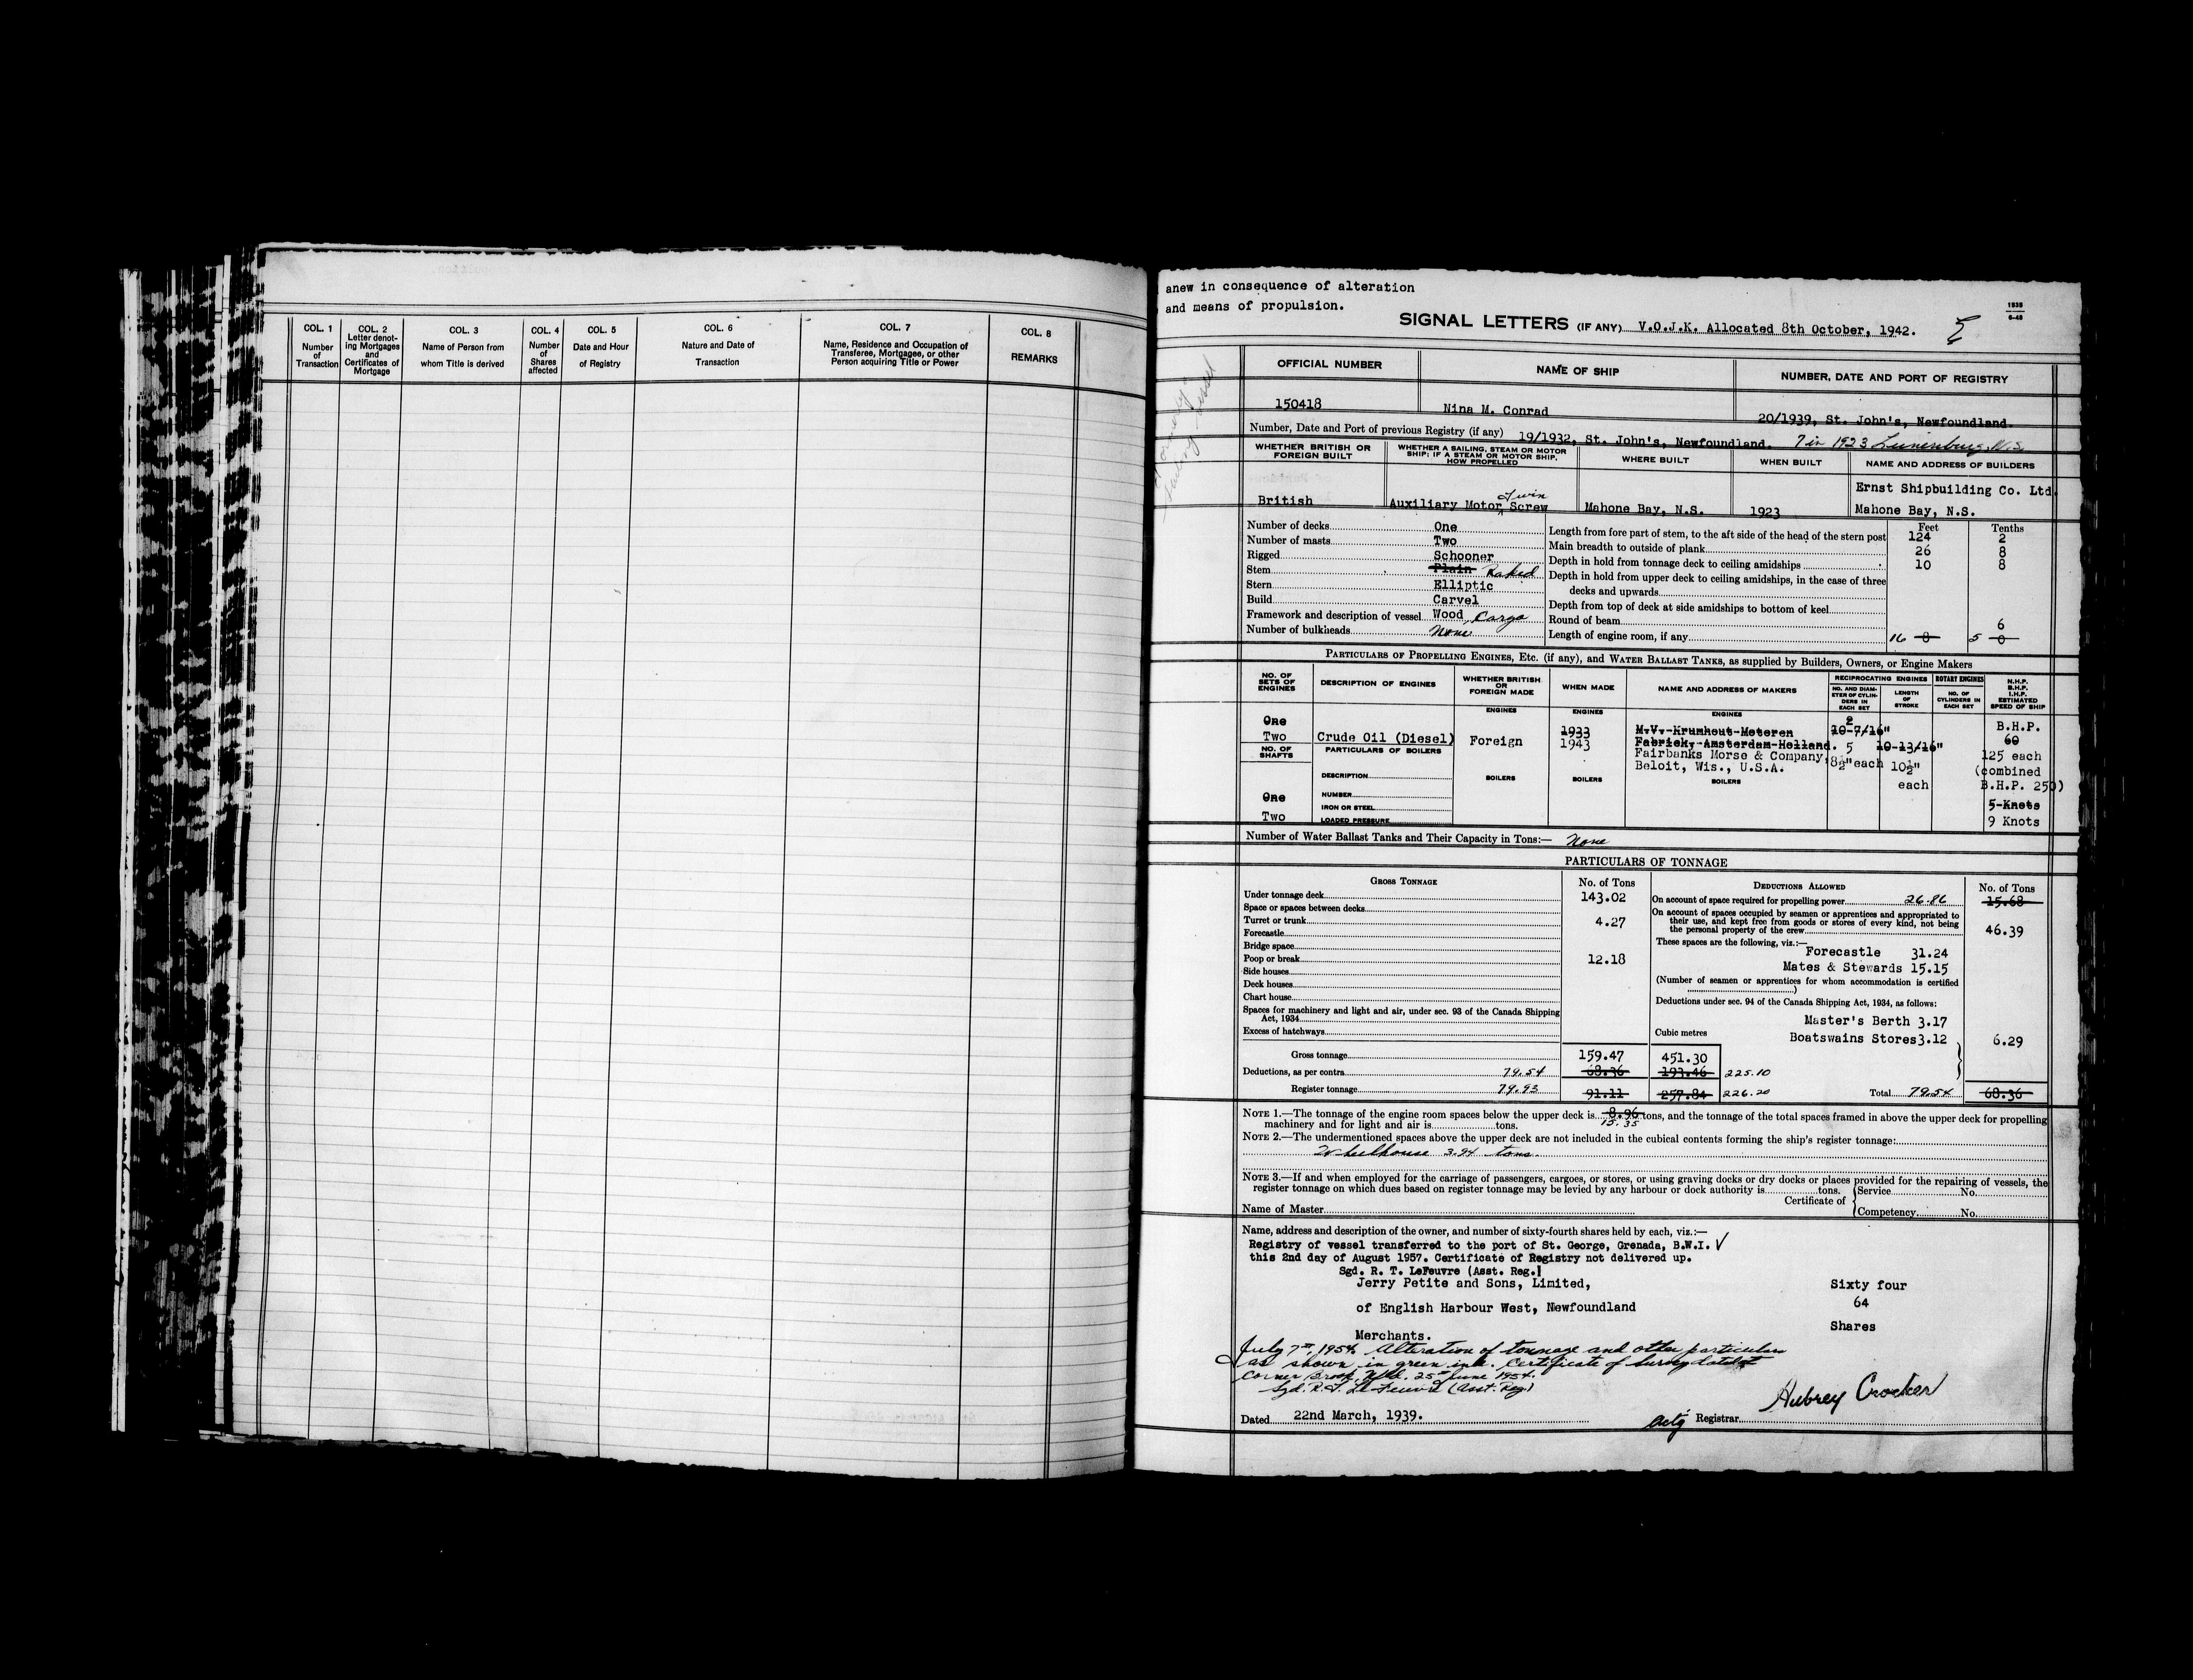 COL. 1
Number
of
Transaction
COL. 2
Letter denot-
ing Mortgages
and
Certificates of
Mortgage
COL. 3
Name of Person from
whom Title is derived
COL. 4
Number
of
Shares
affected
COL. 5
Date and Hour
of Registry
COL. 6
Nature and Date of
Transaction
COL. 7
Name, Residence and Occupation of
Transferee, Mortgagee, or other
Person acquiring Title or Power
COL. 8
REMARKS
anew in consequence of alteration
and means of propulsion.
SIGNAL LETTERS (IF ANY) V.O.J.K. Allocated 8th October, 1942.
OFFICIAL NUMBER NAME OF SHIP NUMBER, DATE AND PORT OF REGISTRY
150418 Nina M. Conrad 20/1939, St. John's, Newfoundland.
Number, Date and Port of previous Registry (if any) 19/1932, St. John's, Newfoundland. 7 in 1923 Lunenburg, N.S.
WHETHER BRITISH OR
FOREIGN BUILT
WHETHER A SAILING, STEAM OR MOTOR
SHIP; IF A STEAM OR MOTOR SHIP,
HOW PROPELLED
WHERE BUILT
WHEN BUILT
NAME AND ADDRESS OF BUILDERS
British
Auxiliary Motor Twin Screw
Mahone Bay, N.S.
1923
Ernst Shipbuilding Co. Ltd.
Mahone Bay, N.S.
Number of decks One
Number of masts Two
Rigged Schooner
Stem Plain Raked
Stern Elliptic
Build Carvel
Framework and description of vessel Wood, Cargo
Number of bulkheads None
Feet Tenths
Length from fore part of stem, to the aft side of the head of the stern post 124 2
Main breadth to outside of plank 26 8
Depth in hold from tonnage deck to ceiling amidships 10 8
Depth in hold from upper deck to ceiling amidships, in the case of three
decks and upwards
Depth from top of deck at side amidships to bottom of keel
Round of beam 6
Length of engine room, if any 16 8 5 0
PARTICULARS OF PROPELLING ENGINES, ETC. (if any), and WATER BALLAST TANKS, as supplied by Builders, Owners, or Engine Makers
NO. OF
SETS OF
ENGINES
DESCRIPTION OF ENGINES
WHETHER BRITISH
OR
FOREIGN MADE
WHEN MADE
NAME AND ADDRESS OF MAKERS
RECIPROCATING ENGINES
NO. AND DIAM-
ETER OF CYLIN-
DERS IN
EACH SET
LENGTH
OF
STROKE
ROTARY ENGINES
NO. OF
CYLINDERS IN
EACH SET
N.H.P.
B.H.P.
I.H.P.
ESTIMATED
SPEED OF SHIP
ENGINES ENGINES ENGINES
One
Two
Crude Oil (Diesel)
Foreign
1933
1943
M.V. Krumhout Moteren
Fabriek, Amsterdam Holland.
Fairbanks Morse & Company,
Beloit, Wis., U.S.A.
2
10-7/16"
5
8½" each
10-13/16"
10½"
each
B.H.P.
60
125 each
(combined
B.H.P. 250)
5 Knots
9 Knots
NO. OF
SHAFTS
One
Two
PARTICULARS OF BOILERS
DESCRIPTION
NUMBER
IRON OR STEEL
LOADED PRESSURE
BOILERS BOILERS BOILERS
Number of Water Ballast Tanks and Their Capacity in Tons:— None
PARTICULARS OF TONNAGE
GROSS TONNAGE No. of Tons
Under tonnage deck 143.02
Space or spaces between decks
Turret or trunk 4.27
Forecastle
Bridge space
Poop or break 12.18
Side houses
Deck houses
Chart house
Spaces for machinery and light and air, under sec. 93 of the Canada Shipping
Act, 1934
Excess of hatchways
Cubic metres
Gross tonnage 159.47 451.30
Deductions, as per contra 79.54 68.36 193.46 225.10
Register tonnage 79.93 91.11 257.84 226.20
DEDUCTIONS ALLOWED No. of Tons
On account of space required for propelling power 26.86 15.68
On account of spaces occupied by seamen or apprentices and appropriated to
their use, and kept free from goods or stores of every kind, not being
the personal property of the crew 46.39
These spaces are the following, viz.:—
Forecastle 31.24
Mates & Stewards 15.15
(Number of seamen or apprentices for whom accommodation is certified
)
Deductions under sec. 94 of the Canada Shipping Act, 1934, as follows:
Master's Berth 3.17
Boatswains Stores 3.12 6.29
Total 79.54 68.36
NOTE 1.—The tonnage of the engine room spaces below the upper deck is 8.96 tons, and the tonnage of the total spaces framed in above the upper deck for propelling
15.35
machinery and for light and air is tons.
NOTE 2.—The undermentioned spaces above the upper deck are not included in the cubical contents forming the ship's register tonnage:
Wheelhouse 3.94 tons.
NOTE 3.—If and when employed for the carriage of passengers, cargoes, or stores, or using graving docks or dry docks or places provided for the repairing of vessels, the
register tonnage on which dues based on register tonnage may be levied by any harbour or dock authority is tons.
Name of Master
Certificate of
Service No.
Competency No.
Name, address and description of the owner, and number of sixty-fourth shares held by each, viz.:—
Registry of vessel transferred to the port of St. George, Grenada, B.W.I.
this 2nd day of August 1957. Certificate of Registry not delivered up.
Sgd. R. T. LeFeuvre (Asst. Reg.)
Jerry Petite and Sons, Limited, Sixty four
of English Harbour West, Newfoundland 64
Merchants. Shares
July 7th, 1954. Alteration of tonnage and other particulars
as shown in green ink. Certificate of Survey dated at
Corner Brook, Nfld. 25th June 1954.
Sgd. R.T. LeFeuvre (Asst. Reg.)
Aubrey Crocker
Dated 22nd March, 1939. Actg Registrar